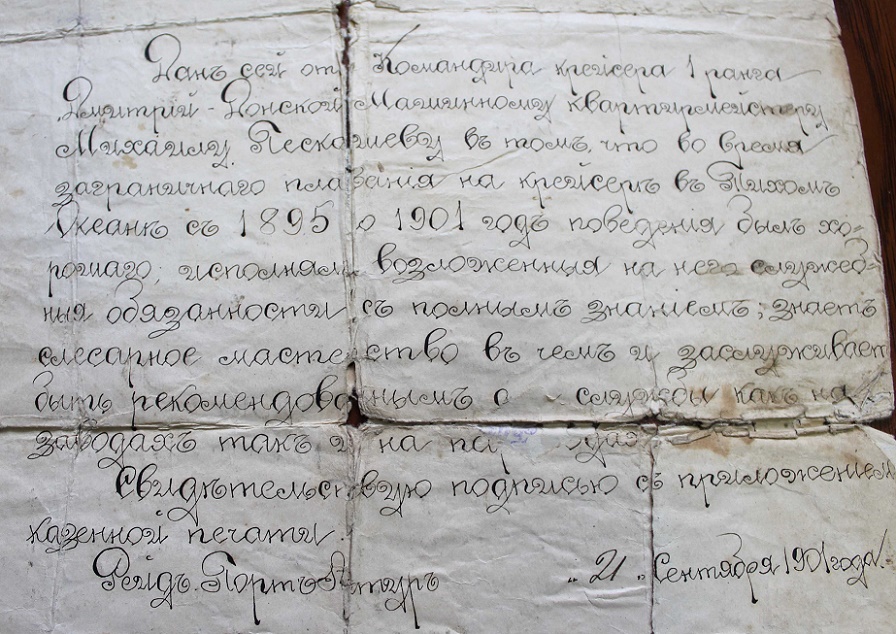 Данъ сей отъ Командира крейсера 1 ранга
Дмитрий-Донской Машинному квартирмейстеру
Михаилу Пескошеву въ томъ, что во время
заграничнаго плаванія на крейсерѣ въ Тихомъ
Океанѣ съ 1895 по 1901 годъ поведенія былъ хо-
рошаго, исполнялъ возложенныя на него служеб-
ныя обязанности съ полнымъ знаніемъ; знаетъ
слесарное мастерство въ чемъ и заслуживает
быть рекомендованнымъ службы какъ на
заводахъ такъ и на
Свидѣтельствую подписью съ приложеніемъ
казенной печати.
Рейдъ. Портъ-Артуръ „21„ Сентября 1901 года.